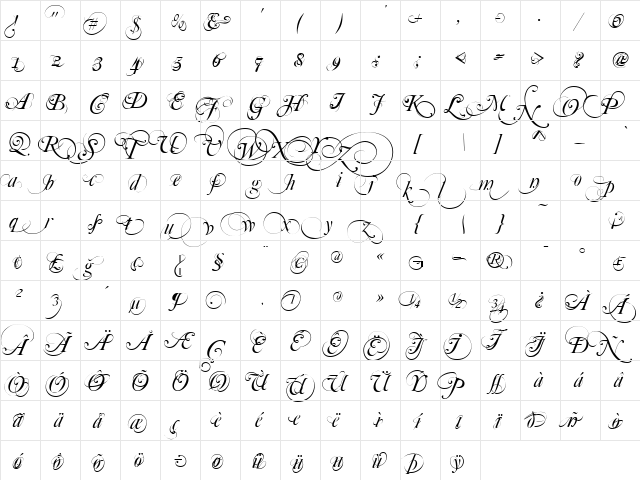 ! " # $ % & ' ( ) * + , - . / 0
1 2 3 4 5 6 7 8 9 : ; < = > ? @
A B C D E F G H I J K L M N O P
Q R S T U V W X Y Z [ \ ] ^ _ `
a b c d e f g h i j k l m n o p
q r s t u v w x y z { | } ~
¢ £ § ¨ © ª « ¬ ® ¯ ° ±
² ³ ´ µ ¶ · ¸ ¹ º » ¼ ½ ¾ ¿ À Á
 à Ä Å Æ Ç È É Ê Ë Ì Í Î Ï Ð Ñ
Ò Ó Ô Õ Ö Ø Ù Ú Û Ü Ý Þ ß à á â
ã ä å æ ç è é ê ë ì í î ï ð ñ ò
ó ô õ ö ÷ ø ù ú û ü ý þ ÿ